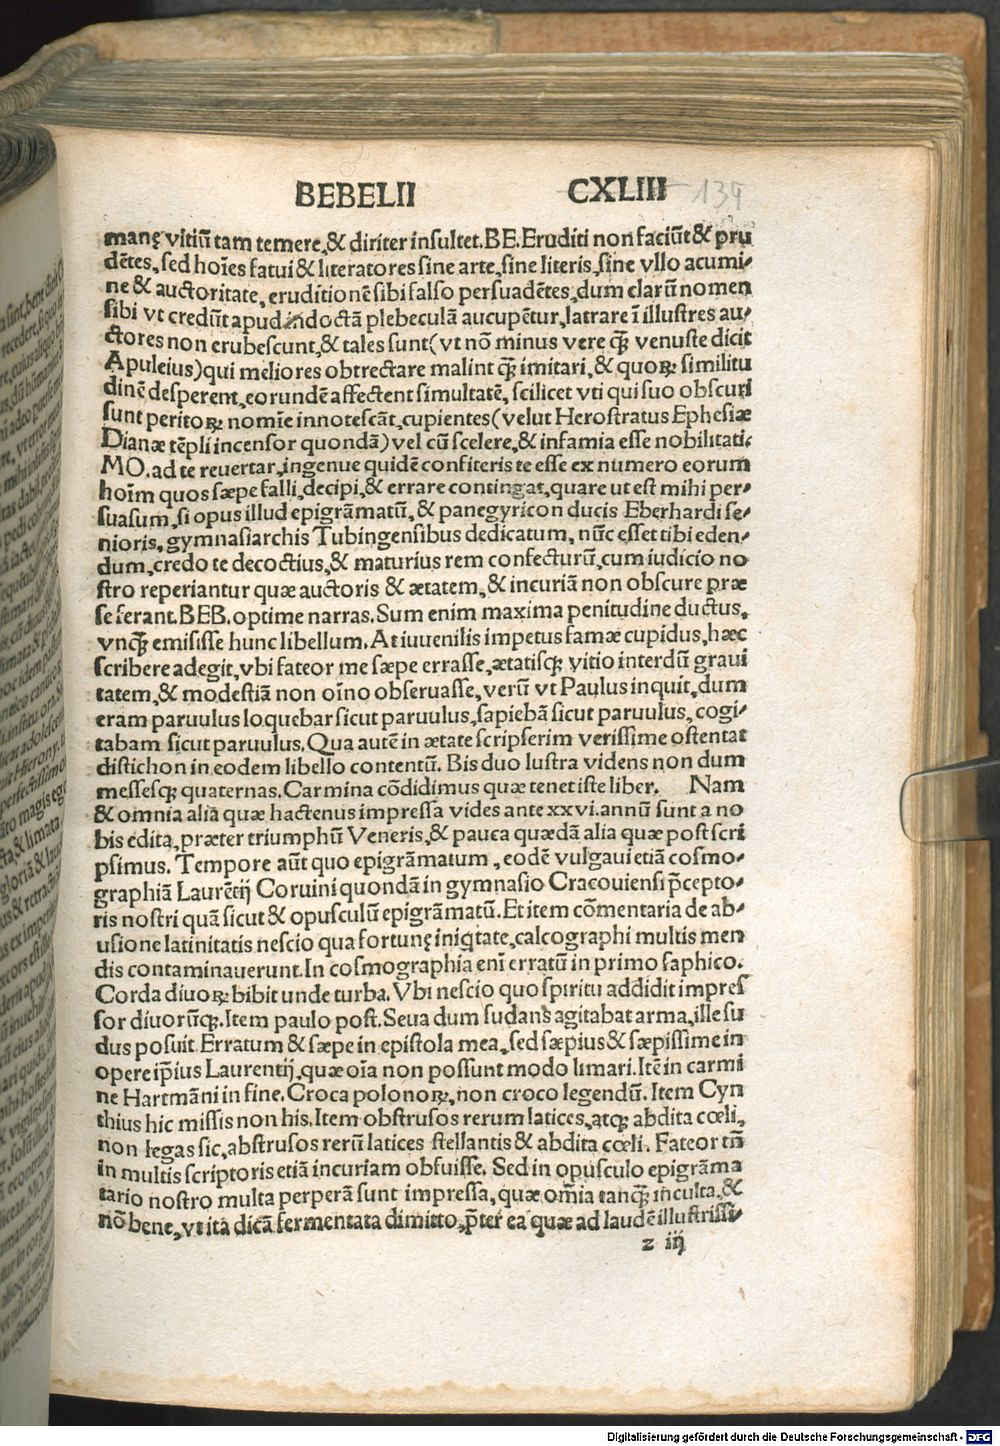 BEBELII CXLIII 139
manę vitiū tam temere,& diriter insultet.BE.Eruditi non faciūt & pru
dētes, sed hoīes fatui & literatores sine arte, sine literis, sine vllo acumi⸗
ne & auctoritate, eruditionē sibi falso persuadētes, dum clarū nomen
sibi vt credūt apud indoctā plebeculā aucupētur, latrare ī illustres au⸗
ctores non erubescunt,& tales sunt(vt nō minus vere qȝ venuste dicit
Apuleius)qui meliores obtrectare malint qȝ imitari,& quoꝝ similitu
dinē desperent, eorundē affectent simultatē, scilicet vti qui suo obscuri
sunt peritoꝝ nomīe innotescāt, cupientes(velut Herostratus Ephesiæ
Dianæ tēpli incensor quondā)vel cū scelere,& infamia esse nobilitati.
MO.ad te reuertar, ingenue quidē confiteris te esse ex numero eorum
hoīm quos sæpe falli, decipi,& errare contingat, quare ut est mihi per⸗
suasum, si opus illud epigrāmatū,& panegyricon ducis Eberhardi se⸗
nioris, gymnasiarchis Tubingensibus dedicatum, nūc esset tibi eden⸗
dum, credo te decoctius,& maturius rem confecturū, cum iudicio no
stro reperiantur quæ auctoris & ætatem,& incuriā non obscure præ
se ferant.BEB.optime narras.Sum enim maxima penitudine ductus,
vnqȝ emisisse hunc libellum.At iuuenilis impetus famæ cupidus, hæc
scribere adegit, vbi fateor me sæpe errasse, ætatisqȝ vitio interdū graui
tatem,& modestiā non oīno obseruasse, verū vt Paulus inquit, dum
eram paruulus loquebar sicut paruulus, sapiebā sicut paruulus, cogi
tabam sicut paruulus.Qua autē in ætate scripserim verissime ostentat
distichon in eodem libello contentū. Bis duo lustra videns non dum
messesqȝ quaternas.Carmina cōdidimus quæ tenet iste liber. Nam
& omnia alia quæ hactenus impressa vides ante xxvi.annū sunt a no
bis edita, præter triumphū Veneris,& pauca quædā alia quæ post scri
psimus. Tempore aūt quo epigrāmatum, eodē vulgaui etiā cosmo⸗
graphiā Laurētij Coruini quondā in gymnasio Cracouiensi p̄cepto⸗
ris nostri quā sicut & opusculū epigrāmatū.Et item cōmentaria de ab⸗
usione latinitatis nescio qua fortunę iniqtate, calcographi multis men
dis contaminauerunt.In cosmographia enī erratū in primo saphico.
Corda diuoꝝ bibit unde turba.Vbi nescio quo spiritu addidit impres
sor diuorūqȝ.Item paulo post.Seua dum sudans agitabat arma, ille su
dus posuit.Erratum & sæpe in epistola mea, sed sæpius & sæpissime in
opere ip̄ius Laurentij, quæ oīa non possunt modo limari.Itē in carmi
ne Hartmāni in fine.Croca polonoꝝ, non croco legendū.Item Cyn
thius hic missis non his.Item obstrusos rerum latices, atqȝ abdita cœli,
non legas sic, abstrusos rerū latices stellantis & abdita cœli. Fateor tn̄
in multis scriptoris etiā incuriam obfuisse. Sed in opusculo epigrāma
tario nostro multa perperā sunt impressa, quæ om̄ia tanqȝ inculta,&
nō bene, vt ita dicā fermentata dimitto, p̄ter ea quæ ad laudē illustrissi⸗
z iij
Digitalisierung gefördert durch die Deutsche Forschungsgemeinschaft - DFG